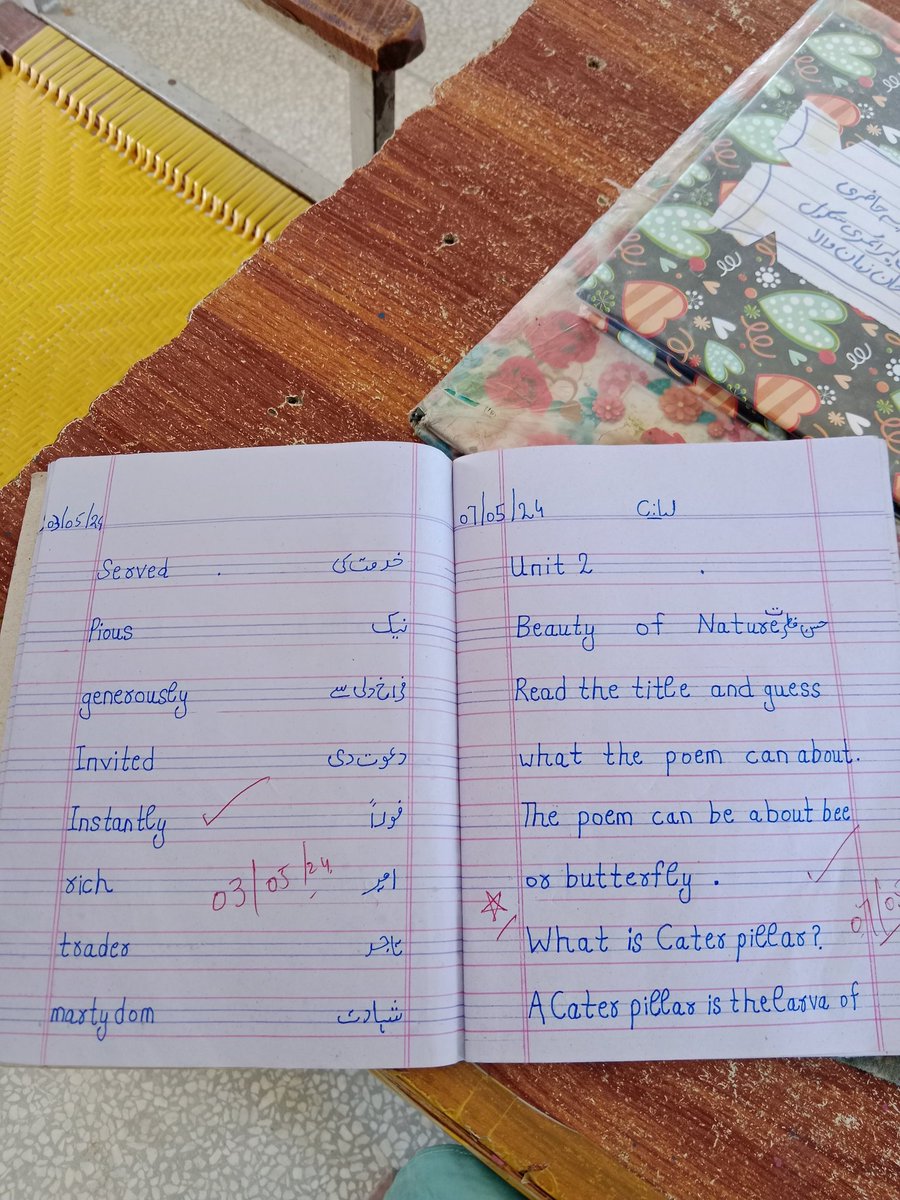 حاضری
پرائمری سکول
03/05/24
Served . خدمت کی
Pious نیک
generously فراخ دلی سے
Invited دعوت دی
Instantly فوراً
rich امیر
03/05/24
trader تاجر
martydom شہادت
07/05/24 C.W
Unit 2 .
Beauty of Nature حسن فطرت
Read the title and guess
what the poem can about.
The poem can be about bee
or butterfly .
What is Cater pillar?
A Cater pillar is the larva of